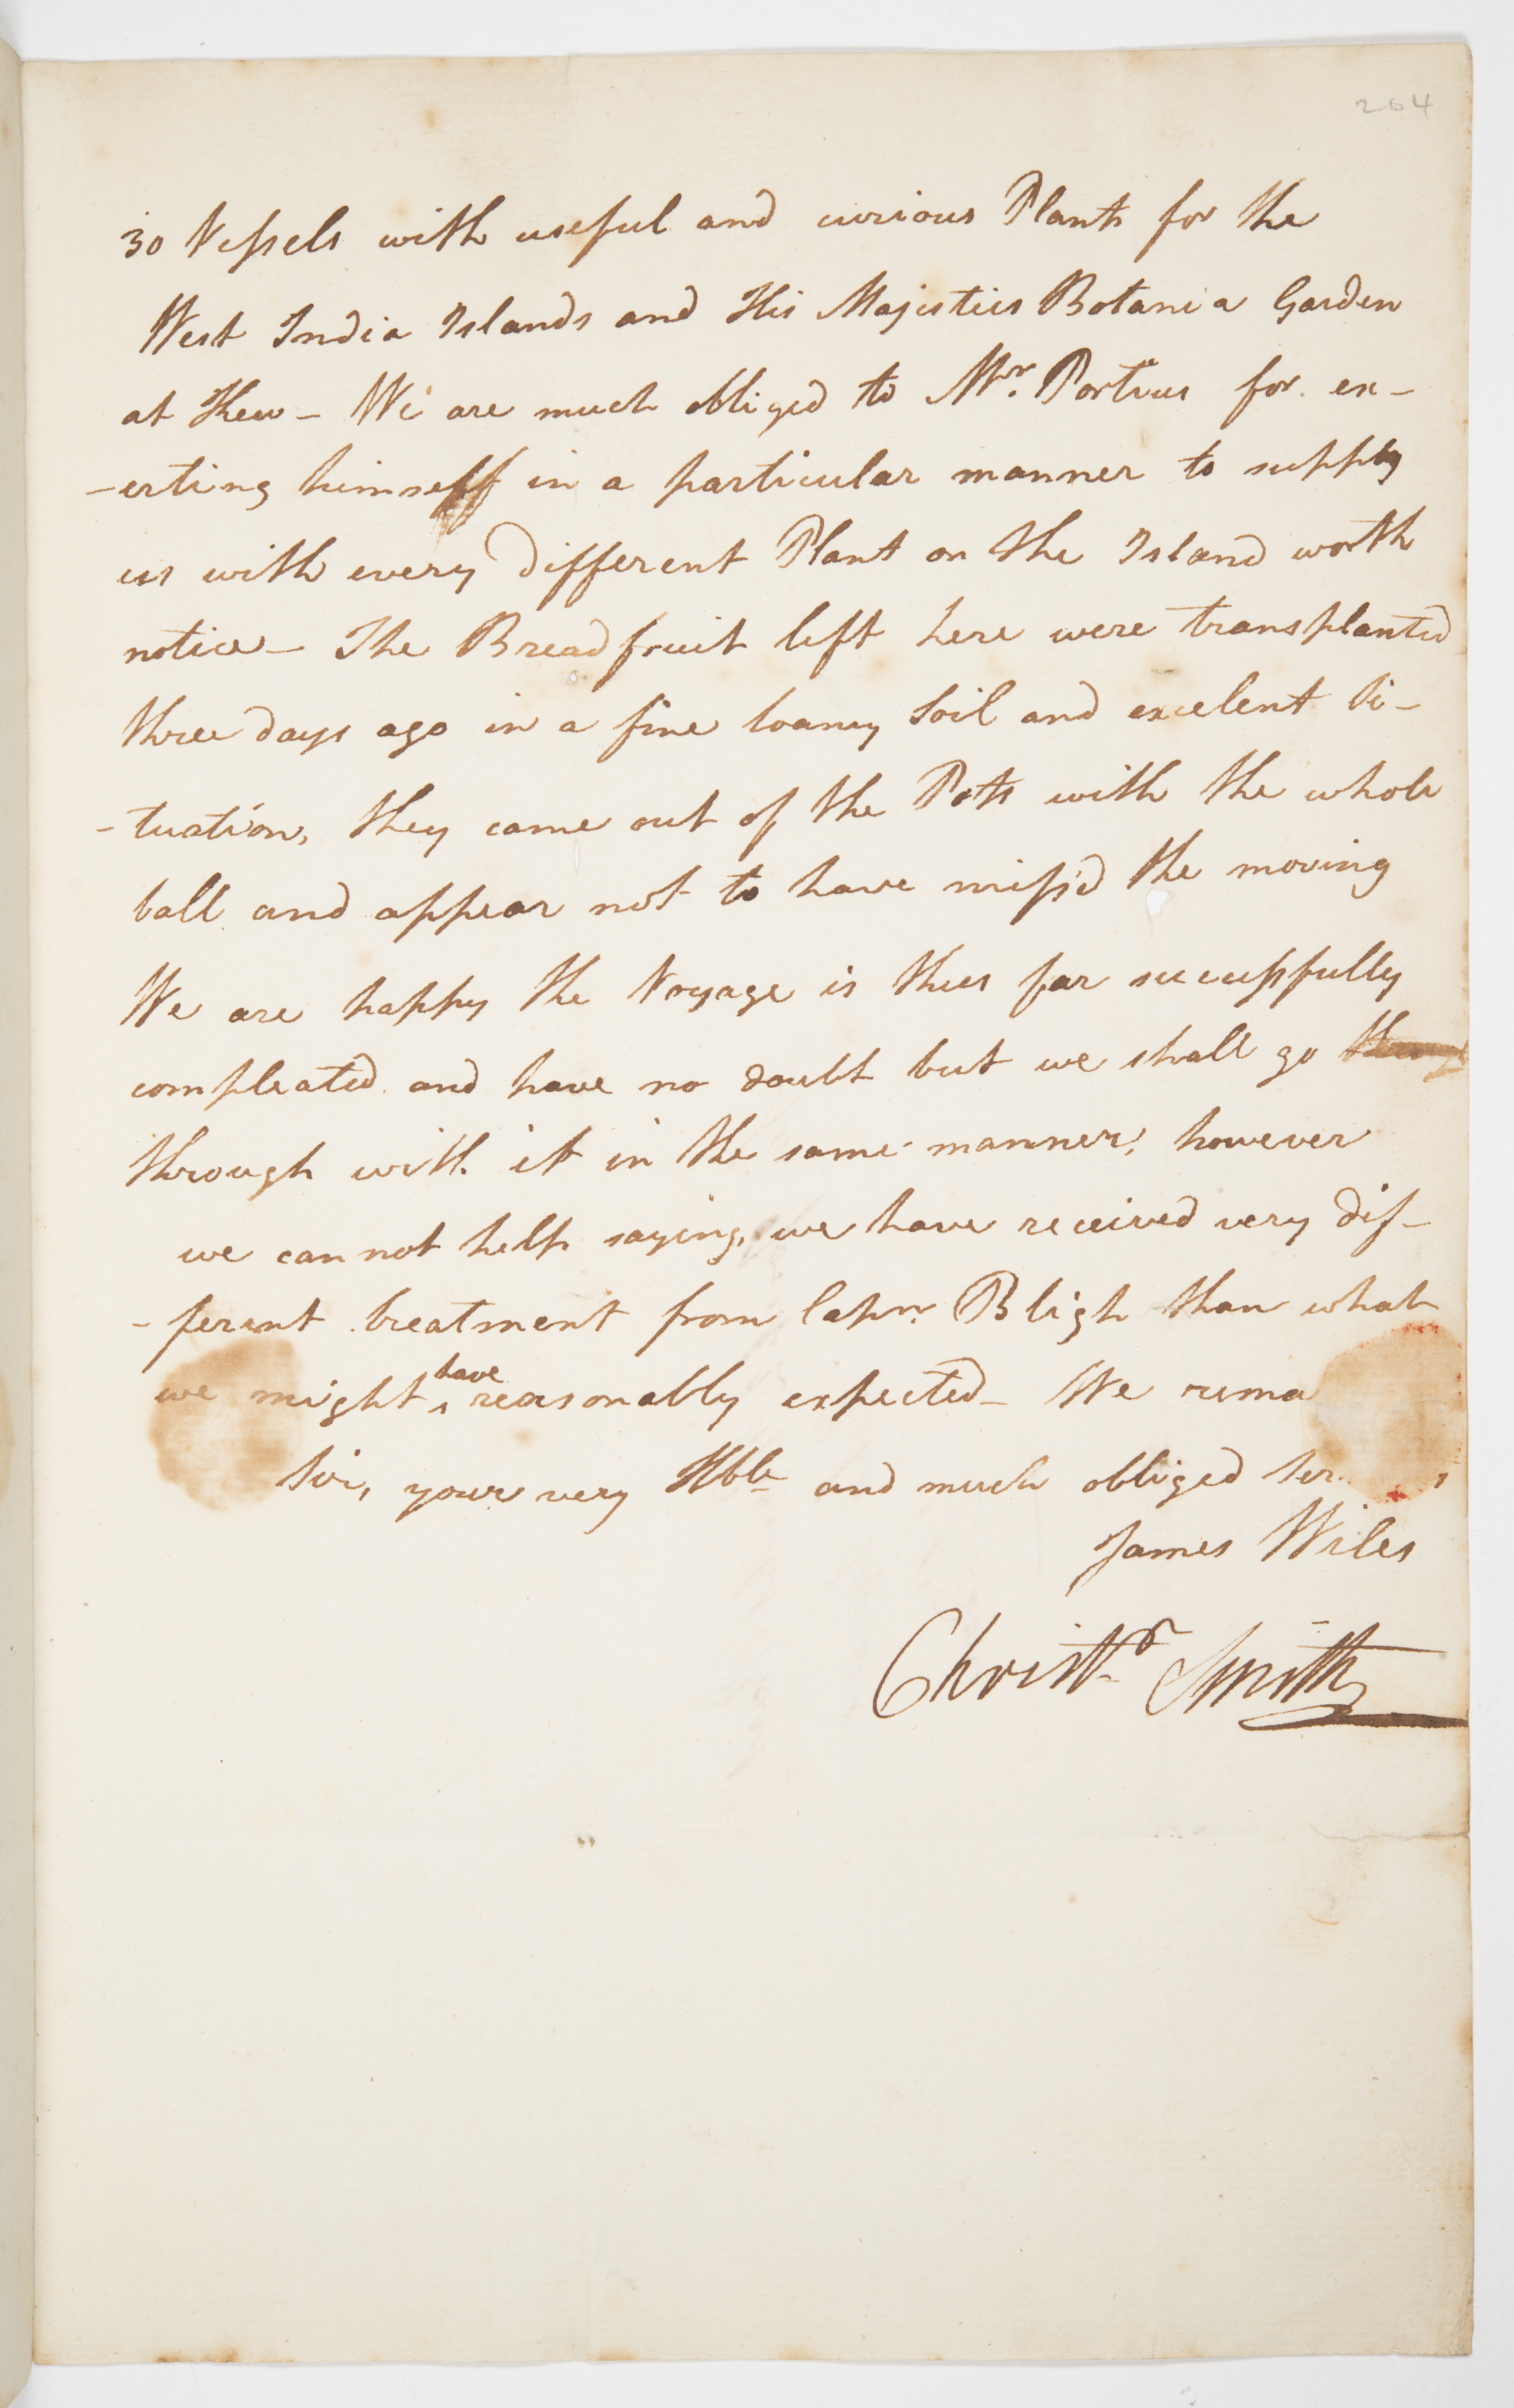 264
30 Vessels with useful and curious Plants for the
West India Islands and His Majesties Botania Garden
at Kew - We are much obliged to Mr. Porteus for ex-
-erting himself in a particular manner to supply
us with every different Plant on the Island worth
notice - The Breadfruit left here were transplanted
three days ago in a fine loamy Soil and excelent Si-
-tuation, they came out of the Pots with the whole
ball and appear not to have miss'd the moving
We are happy the Voyage is thus far successfully
compleated and have no doubt but we shall go
through with it in the same manner, however
we can not help saying, we have received very dif-
-ferent treatment from Capn. Bligh than what
we might have reasonably expected - We rema
Sir, your very Hble and much obliged Ser
James Wiles
Christr Smith